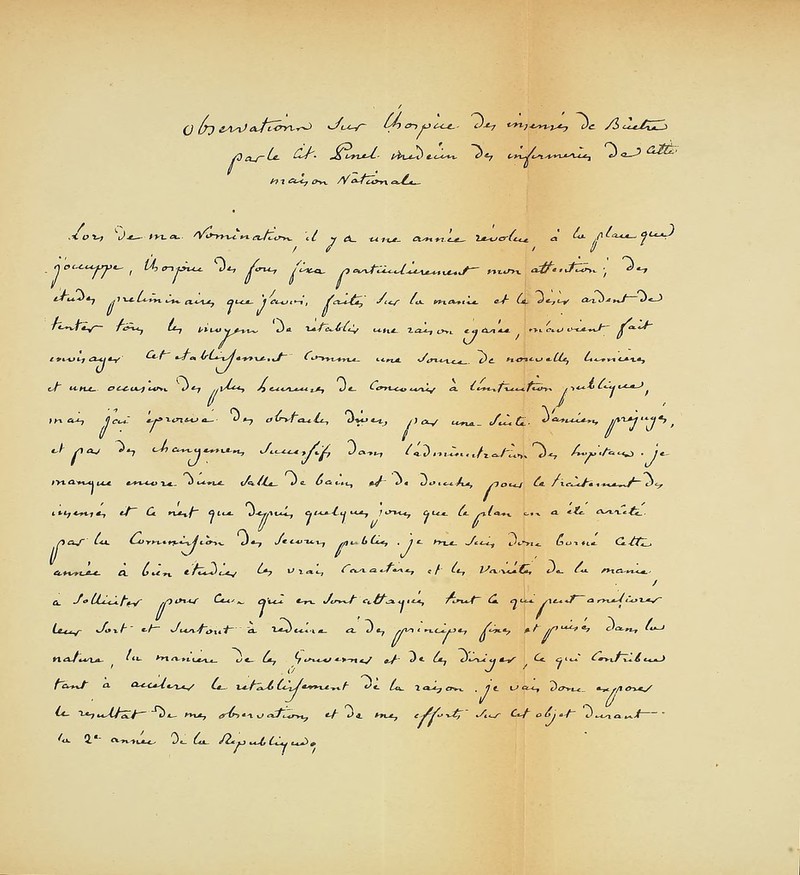 Observations sur l'hospice des insensés de Bicetre
par le Cit. Pinel medecin des infirmeries de cette
maison Nationale
Lors de ma Nomination, il y a une année revolue, à la place que
j'occuppe, l'hospice des fous fixa particulierement mon attention ; des
etudes preliminaires que j'avois faites sur la manie et le desir ardent de
tenter tous les moyens de rétablir une raison egarée, m'avoient fait
envisager cet etablissement comme une source de nouvelles lumieres,
et une occasion des plus heureuses de concourir à l'instruction publique,
mais j'ai éprouvé des obstacles divers, par une suite d'anciens prejugés,
et par des changemens successifs dans l'administration des hopitaux. je
manque encore d'une salle de bains et de douches pour le traitement des
insensés, et ce n'est que depuis quelques jours que le plan en a été arrêté
par la Commission des secours publics. je me suis donc borné cette
année à bien etudier les vrais caracteres et les varietés de la manie,
a solliciter pour ceux qui en sont attaqués tout ce qui peut ameliorer
leur sort et surtout à reduire à des principes fixes et puisés dans la
nature, la maniere de les gouverner et de les diriger, ce qui contribue
tant à accelerer le retablissement de la raison. je vais donc exposer
le resultat de mes observations et de mes efforts sur cet objet durant
la 2e année de la Republique